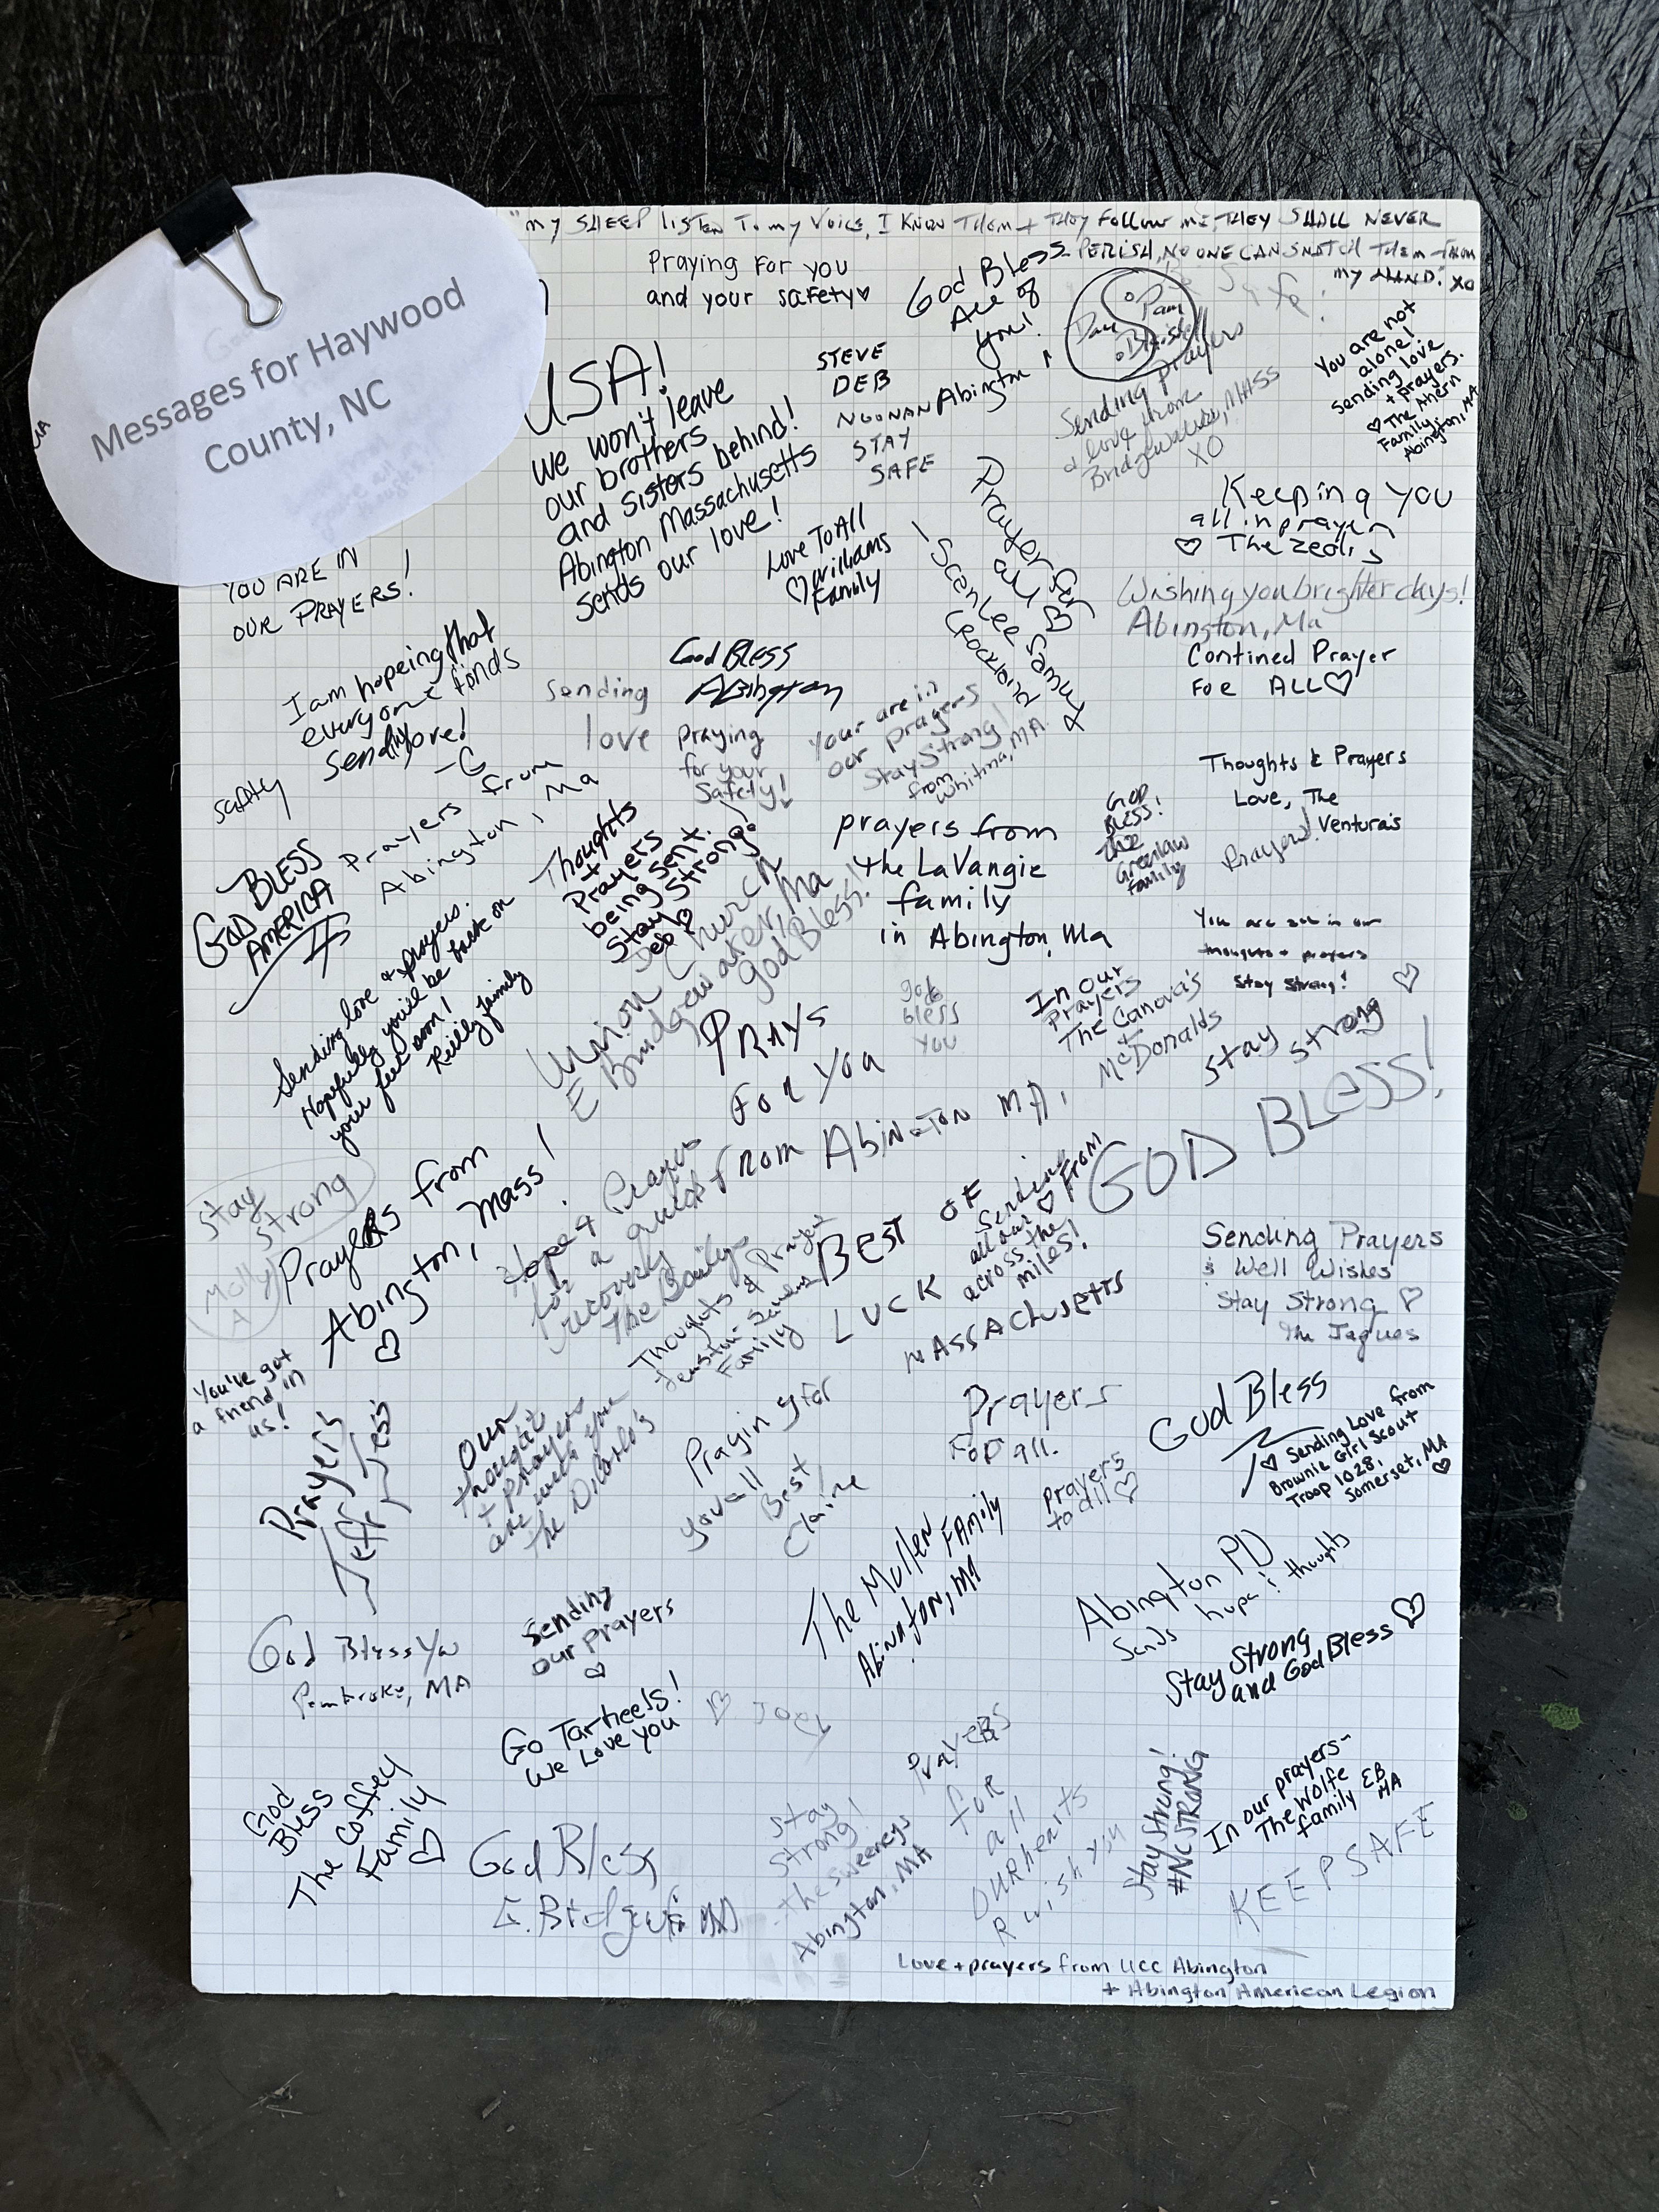 Messages for Haywood
County, NC
"my SHEEP listen To my Voice, I Know Them + They Follow me, THEY SHALL NEVER
PERISH, NO ONE CAN SNATCH Them From
my HAND." xo
Praying For you
and your safety♡
God Bless
All of
you!
Abington
STEVE
DEB
NOONAN
STAY
SAFE
Dave
Pam
Sending prayers
& love from
Bridgewater, MASS
XO
You are not
alone!
Sending love
+ prayers.
♡ The Ahern
Family
Abington, MA
USA!
We won't leave
our brothers
and sisters behind!
Abington Massachusetts
sends our love!
Love To All
♡ Williams
Family
Prayer for
all
Rockland
Keeping you
all in prayer
♡ The Zeoli's
Wishing you brighter days!
Abington, Ma
Contined Prayer
For ALL♡
YOU ARE IN
OUR PRAYERS!
I am hopeing that
everyone finds
love!
-G
safety
God Bless
Abington
Sending
love
Praying
for your
Safety!
Your are in
our prayers
Stay Strong!
from
Whitman, MA.
Thoughts & Prayers
Love, The
Ventura's
Prayers!
GOD
BLESS!
The
Greenlaw
family
prayers from
the LaVangie
family
in Abington, Ma
Prayers from
Abington, Ma
GOD BLESS
AMERICA
Thoughts
+
Prayers
being sent.
Stay Strong!
Deb ♡
Union Church
E Bridgewater, Ma
God Bless!
You are all in our
thoughts + prayers
Stay Strong!
Sending love + prayers.
Hopefully you'll be back on
your feet soon!
Reilly family
PRAYS
For You
From Abington MA,
god
bless
you
In our
Prayers
The Canova's
+
McDonalds
Stay strong ♡
GOD BLESS!
Stay
Strong
Molly
A
Prayers from
Abington, Mass!
♡
Hope & Prayers
for a quick
recovery
The Bailys
Thoughts & Prayer
Family
BEST OF
LUCK
MASSACHUSETTS
Sending
all our ♡ From
across the
miles!
Sending Prayers
& Well Wishes
Stay Strong ♡
The Jaques
You've got
a friend in
us!
Prayers
Jeff Jess
Our
thoughts
+ prayers
are with you
The DiCarlo's
Praying for
you all
Best
Claire
Prayers
For all.
God Bless
♡ Sending Love from
Brownie Girl Scout
Troop 1028,
Somerset, MA
♡
prayers
to all ♡
The Mullen FAMILY
Abington, MA
Abington PD
Sends hope & thoughts
Stay Strong
and God Bless ♡
God Bless You
Pembroke, MA
Sending
our prayers
♡
Go Tarheels!
We Love you
♡ Joey
God
Bless
The Coffey
Family
♡
God Bless
Stay
Strong!
-the Sweeneys
Abington, MA
Prayers
for
all
OUR hearts
R wish you
Stay Strong!
#NCSTRONG
In our prayers-
The Wolfe
family EB
MA
KEEP SAFE
Love + prayers from UCC Abington
+ Abington American Legion